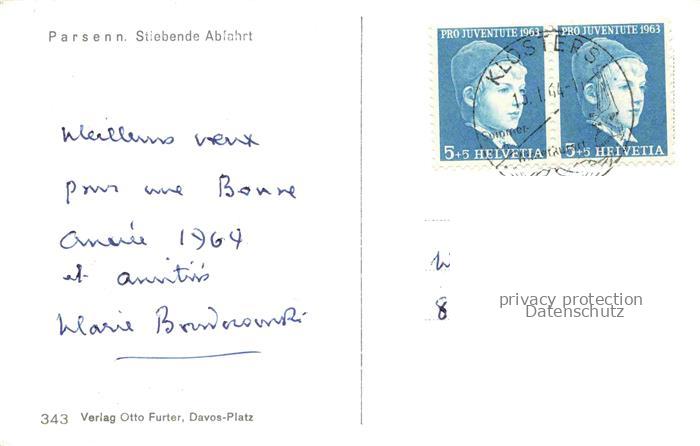 Parsenn. Stiebende Abfahrt
Meilleurs vœux
pour une Bonne
année 1964
et amitiés
Marie
343 Verlag Otto Furter, Davos-Platz
PRO JUVENTUTE 1963 PRO JUVENTUTE 1963
KLOSTERS
Sommer-
5+5 HELVETIA 5+5 HELVETIA
8
privacy protection
Datenschutz